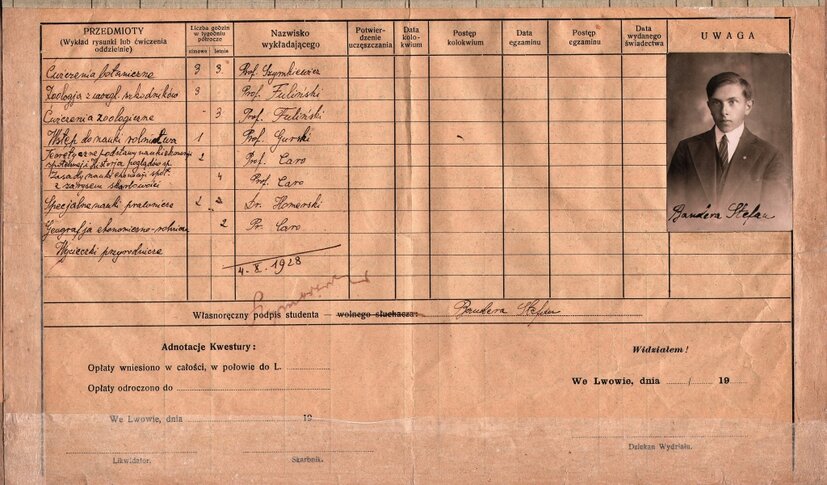 PRZEDMIOTY
(Wykład rysunki lub ćwiczenia
oddzielnie)
Liczba godzin
w tygodniu
półrocze
zimowe letnie
Nazwisko
wykładającego
Potwier-
dzenie
uczęszczania
Data
kolo-
kwium
Postęp
kolokwium
Data
egzaminu
Postęp
egzaminu
Data
wydanego
świadectwa
UWAGA
Ćwiczenia botaniczne 3 3 Prof. Szymkiewicz
Zoologja z uwzgl. szkodników 3 Prof. Fuliński
Ćwiczenia zoologiczne - 3 Prof. Fuliński
Wstęp do nauki rolnictwa 1 Prof. Gurski
Teoretyczne podstawy nauki ekonomji
społecznej i historja poglądów 2 Prof. Caro
Zasady nauki ekonomji społ.
z zarysem skarbowości 4 Prof. Caro
Specjalne nauki prawnicze 2 2 Dr. Homerski
Geografja ekonomiczno-rolnicza 2 Pr. Caro
Wycieczki przyrodnicze
4. X. 1928
Bandera Stefan
Własnoręczny podpis studenta — wolnego słuchacza: Bandera Stefan
Adnotacje Kwestury:
Opłaty wniesiono w całości, w połowie do L.
Opłaty odroczono do
We Lwowie, dnia 19
Likwidator. Skarbnik.
Widziałem!
We Lwowie, dnia 19
Dziekan Wydziału.